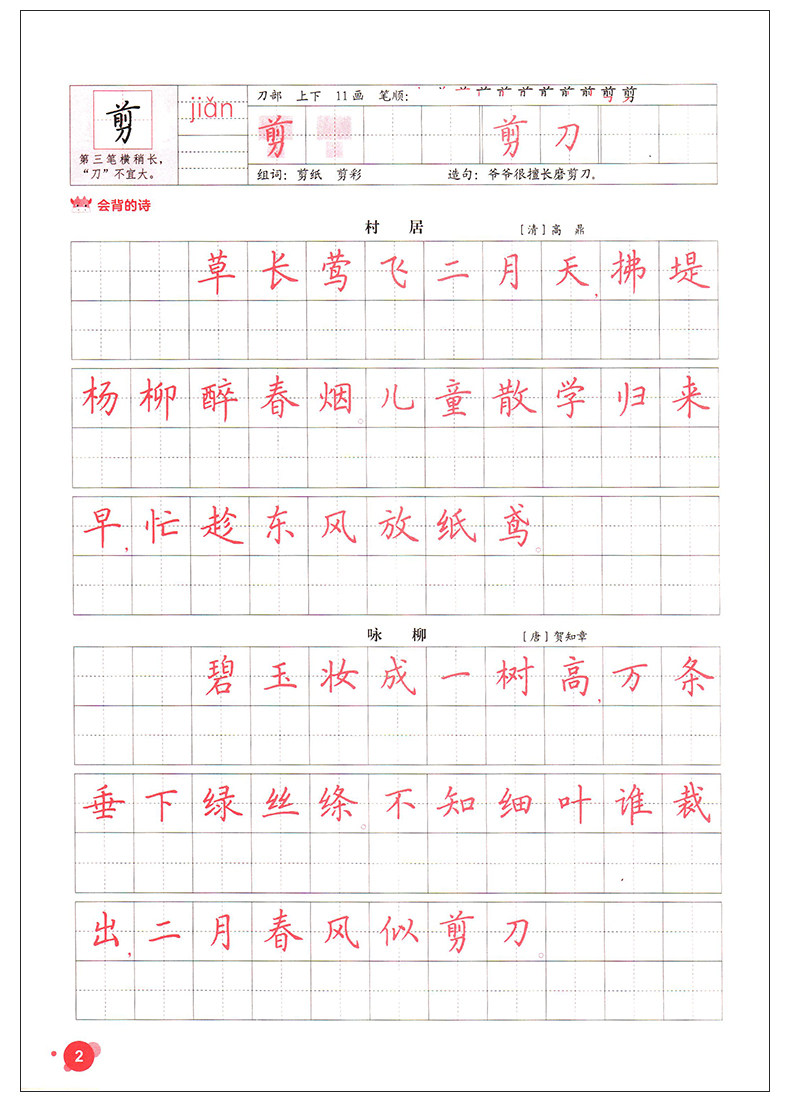 剪
第三笔横稍长，
“刀”不宜大。
jiǎn
刀部 上下 11画 笔顺：
剪 剪刀
组词：剪纸 剪彩 造句：爷爷很擅长磨剪刀。
会背的诗
村居 [清]高鼎
草长莺飞二月天，拂堤
杨柳醉春烟。儿童散学归来
早，忙趁东风放纸鸢。
咏柳 [唐]贺知章
碧玉妆成一树高，万条
垂下绿丝绦。不知细叶谁裁
出，二月春风似剪刀。
2